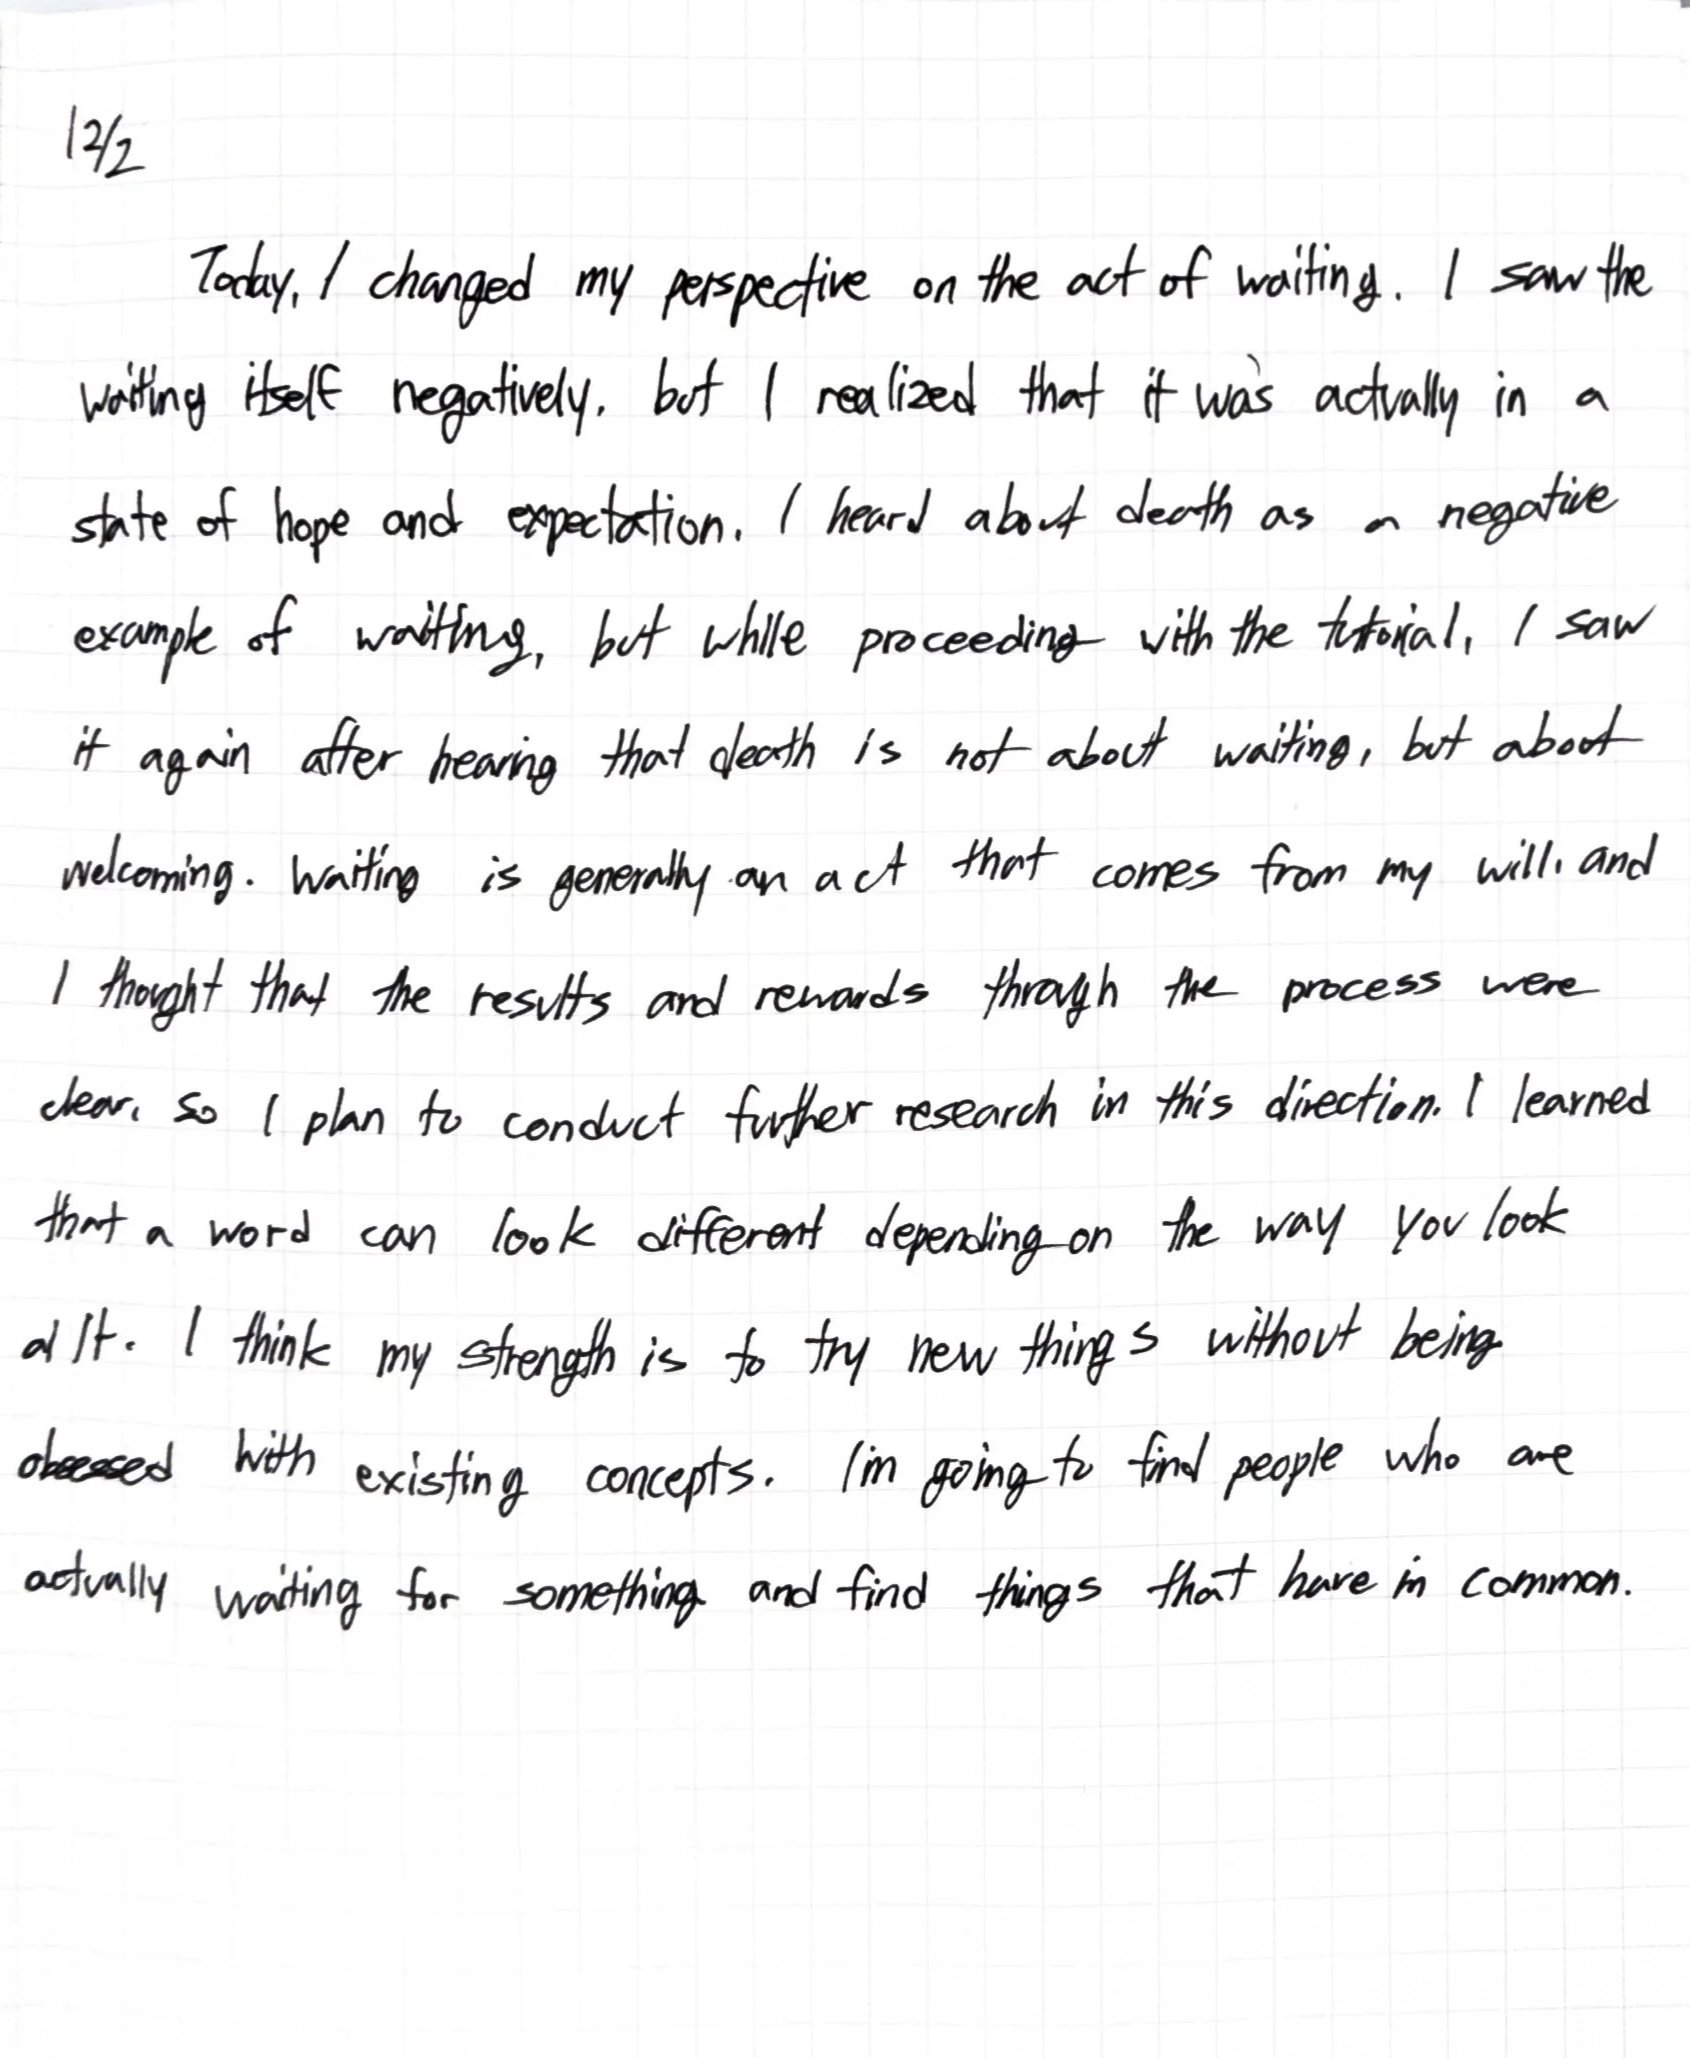 12/2
Today, I changed my perspective on the act of waiting. I saw the
waiting itself negatively, but I realized that it was actually in a
state of hope and expectation. I heard about death as a negative
example of waiting, but while proceeding with the tutorial, I saw
it again after hearing that death is not about waiting, but about
welcoming. Waiting is generally an act that comes from my will, and
I thought that the results and rewards through the process were
clear, so I plan to conduct further research in this direction. I learned
that a word can look different depending on the way you look
at it. I think my strength is to try new things without being
obsessed with existing concepts. I'm going to find people who are
actually waiting for something and find things that have in common.